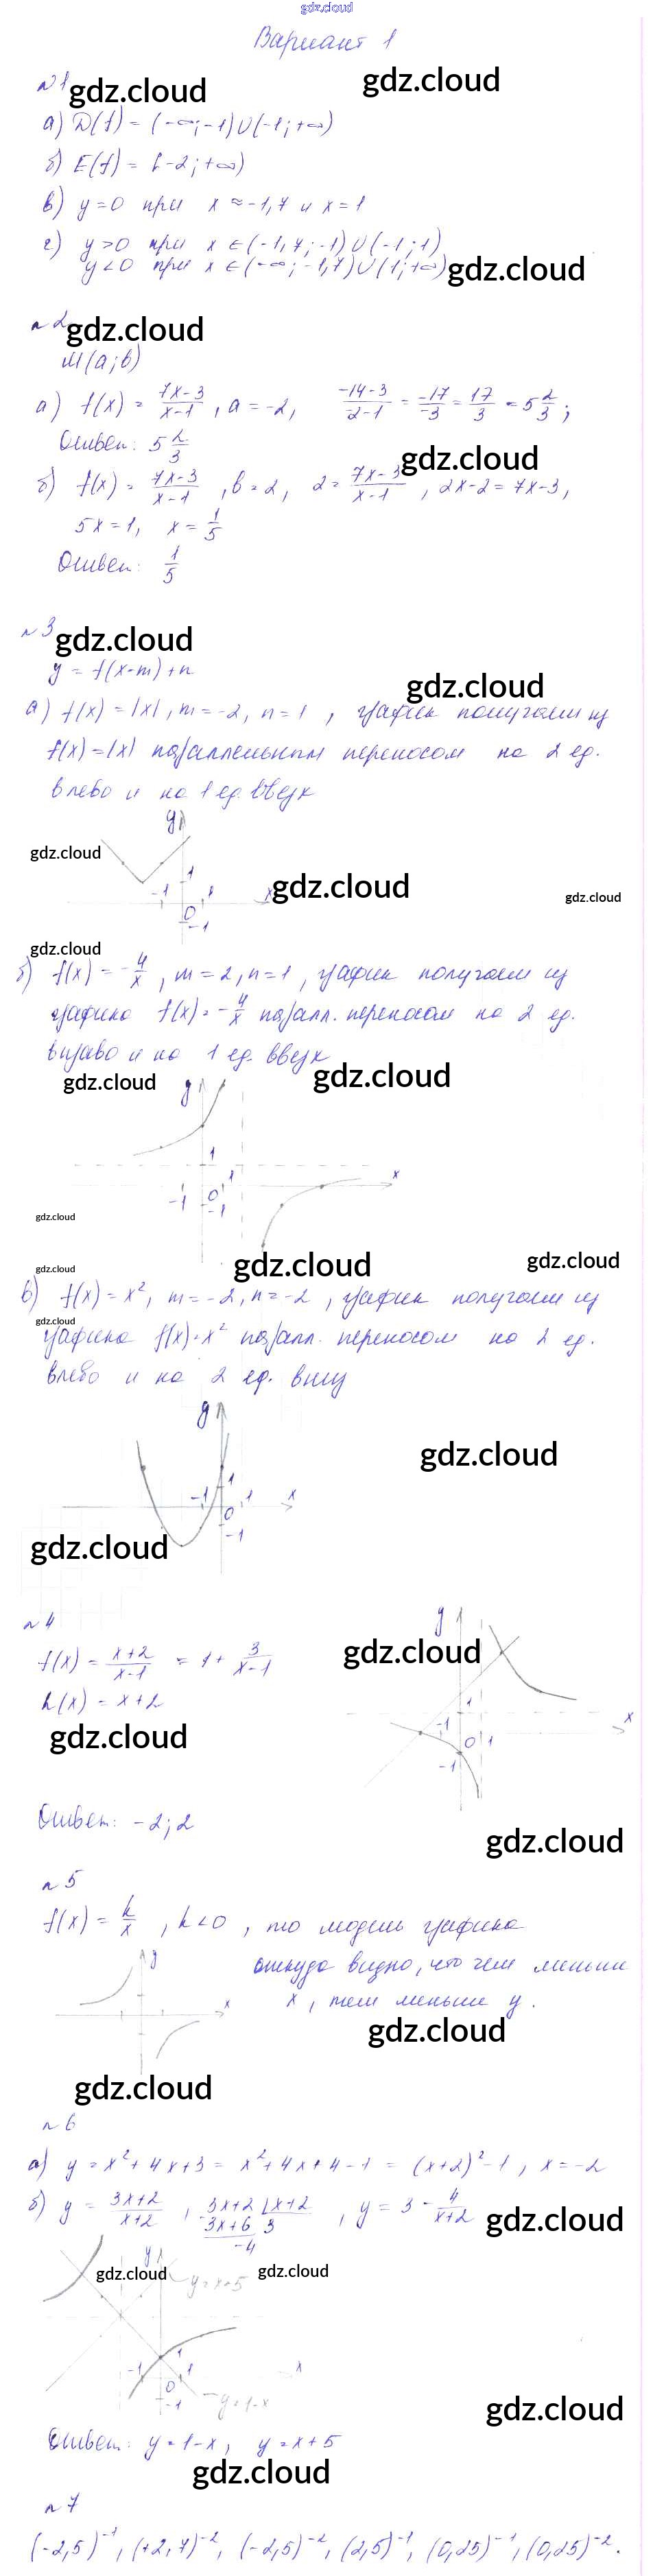 gdz.cloud
Вариант 1
№1 gdz.cloud gdz.cloud
а) D(f) = (-∞; -1) ∪ (-1; +∞)
б) E(f) = [-2; +∞)
в) y = 0 при x ≈ -1,7 и x = 1
г) y > 0 при x ∈ (-1,7; -1) ∪ (-1; 1)
y < 0 при x ∈ (-∞; -1,7) ∪ (1; +∞) gdz.cloud
№2 gdz.cloud
M(a; b)
а) f(x) = (7x-3)/(x-1), a = -2, (-14-3)/(-2-1) = -17/-3 = 17/3 = 5 2/3;
Ответ: 5 2/3
gdz.cloud
б) f(x) = (7x-3)/(x-1), b = 2, 2 = (7x-3)/(x-1), 2x-2 = 7x-3,
5x = 1, x = 1/5
Ответ: 1/5
№3 gdz.cloud
y = f(x-m)+n
gdz.cloud
а) f(x) = |x|, m = -2, n = 1, график получаем из
f(x) = |x| параллельным переносом на 2 ед.
влево и на 1 ед. вверх
y
gdz.cloud
1
-1 1 x gdz.cloud gdz.cloud
0
-1
gdz.cloud
б) f(x) = -4/x, m = 2, n = 1, график получаем из
графика f(x) = -4/x паралл. переносом на 2 ед.
вправо и на 1 ед. вверх
gdz.cloud y gdz.cloud
1
1 x
-1 0
-1
gdz.cloud
gdz.cloud gdz.cloud
gdz.cloud
в) f(x) = x², m = -2, n = -2, график получаем из
gdz.cloud
графика f(x) = x² паралл. переносом на 2 ед.
влево и на 2 ед. вниз
y
gdz.cloud
1
-1 1 x
0
-1
gdz.cloud
№4
y
f(x) = (x+2)/(x-1) = 1 + 3/(x-1) gdz.cloud
h(x) = x+2
1 x
-1 0 1
-1
gdz.cloud
Ответ: -2; 2
gdz.cloud
№5
f(x) = k/x, k < 0, то модель графика
y
откуда видно, что чем меньше
x
x, тем меньше y.
gdz.cloud
gdz.cloud
№6
а) y = x² + 4x + 3 = x² + 4x + 4 - 1 = (x+2)² - 1, x = -2
б) y = (3x+2)/(x+2), 3x+2 | x+2, y = 3 - 4/(x+2)
3x+6 3
-4
gdz.cloud
y
gdz.cloud y = x+5 gdz.cloud
1
-1 1 x
0
-1
y = 1-x gdz.cloud
Ответ: y = 1-x, y = x+5
gdz.cloud
№7
(-2,5)⁻¹, (+2,7)⁻², (-2,5)⁻², (2,5)⁻¹, (0,25)⁻¹, (0,25)⁻².